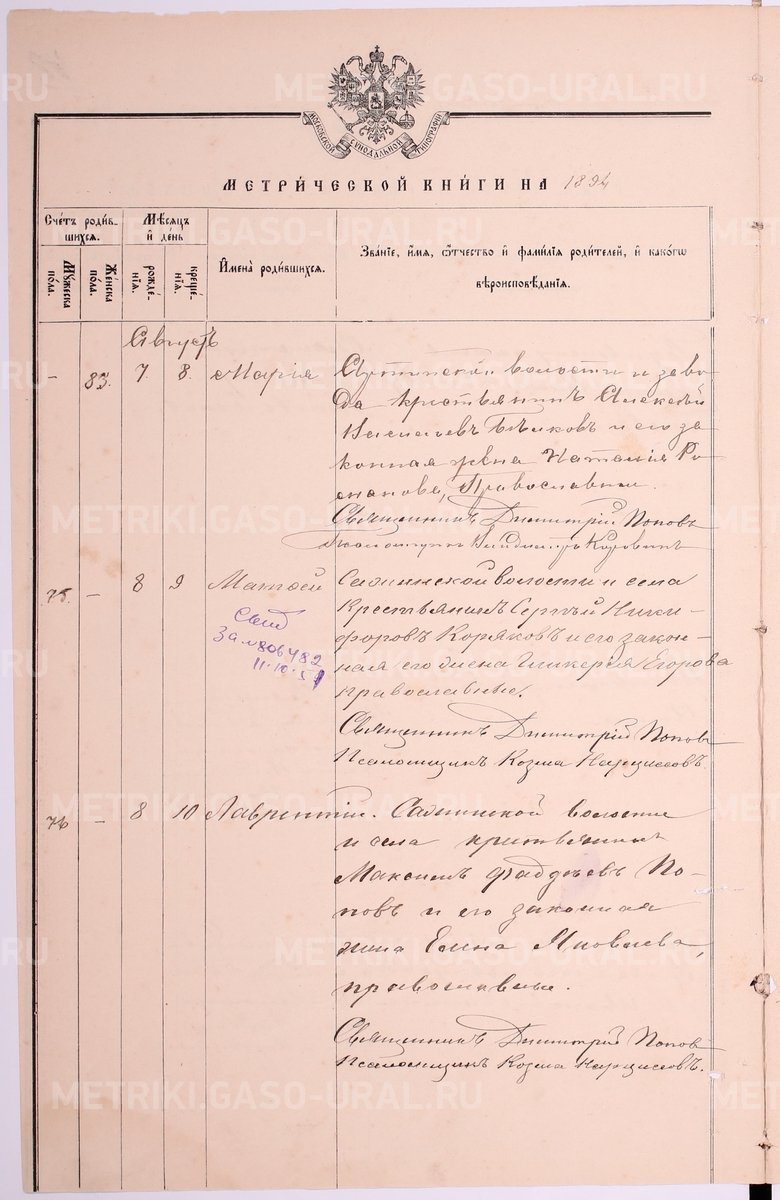 МОСКОВСКОЙ СѴНОДАЛЬНОЙ ТИПОГРАФІИ
МЕТРИ́ЧЕСКОЙ КНИ́ГИ НА 1894
Счétъ роди́вшихся.
Мꙋжеска пола.
Же́нска пола.
Мѣ́сѧцъ и҆ де́нь
рожде́нїѧ.
креще́нїѧ.
И҆мена̀ роди́вшихся.
Зва́нїе, и҆́мѧ, ѻ҆́тчество и҆ фами́лїѧ роди́телей, и҆ како́гѡ
вѣроисповѣ́данїѧ.
Августъ
- 83. 7. 8. Марія Артинской волости и заво-
да крестьянинъ Алексѣй
Васильевъ Бѣлковъ и его за
конная жена Наталія Ро
манова, Православныи.
Священникъ Димитрій Поповъ
Псаломщикъ Коровинъ
75. - 8 9 Матѳей Сажинской волости и села
Крестьянинъ Сергѣй Ники-
форовъ Коряковъ и его закон-
ная его жена Гликерія Егорова
православные.
Свид
За № 806482
11.10.51
Священникъ Димитрій Поповъ
Псаломщикъ Козма Нарциссовъ
76 - 8 10 Лаврентій. Сажинской волости
и села крестьянинъ
Максимъ Фаддѣевъ По-
повъ и его законная
жена Елена Яковлева,
православные.
Священникъ Димитрій Поповъ
Псаломщикъ Козма Нарциссовъ.
METRIKI.GASO-URAL.RU